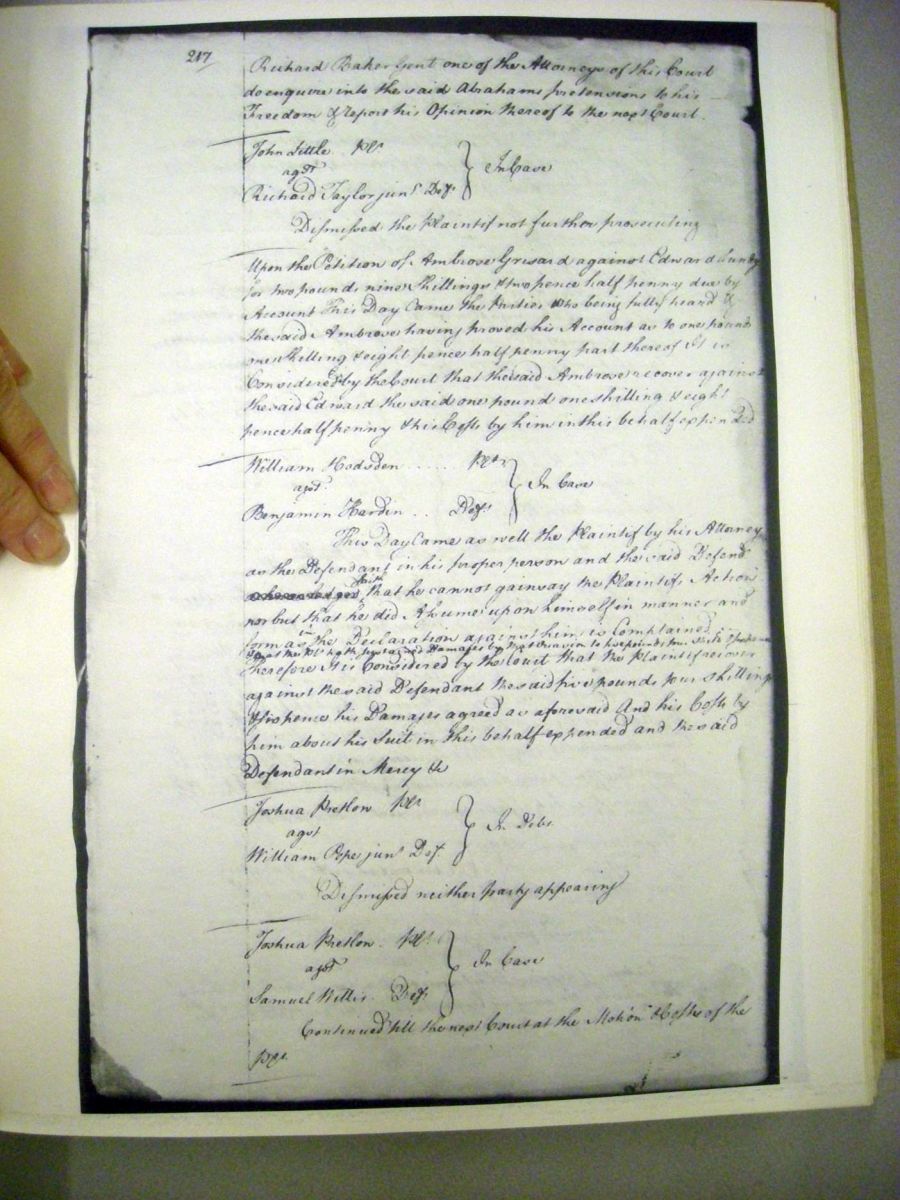 217
Richard Baker Gent one of the Attorneys of this Court
do enquire into the said Abrahams pretensions to his
Freedom & report his Opinion thereof to the next Court.
John Little Plt
agst
Richard Taylor junr Deft
In Case
Dismissed the Plaintif not further prosecuting
Upon the Petition of Ambrose Grisard against Edward
for two pounds nine Shillings & two pence half penny due by
Account This Day Came the Parties who being fully heard &
the said Ambrose having proved his Account as to one pound
one Shilling & eight pence half penny part thereof It is
Considered by the Court that the said Ambrose recover against
the said Edward the said one pound one shilling & eight
pence half penny & his Costs by him in this behalf expended
William Hodsden Plt
agst
Benjamin Hardin Deft
In Case
This Day Came as well the Plaintif by his Attorney
as the Defendant in his proper person and the said Defend
saith that he cannot gainsay the Plaintifs Action
nor but that he did Assume upon himself in manner and
form as in the Declaration against him is Complained
that the Plt hath sustained Damages by that Occasion to five pounds four Shills & six pence
Therefore It is Considered by the Court that the Plaintif recover
against the said Defendant the said five pounds four shillings
& six pence his Damages agreed as aforesaid And his Costs by
him about his Suit in this behalf expended and the said
Defendant in Mercy &c
Joshua Pretlow Plt
agst
William Pope junr Deft
In Debt
Dismissed neither party appearing
Joshua Pretlow Plt
agst
Samuel Willis Deft
In Case
Continued till the next Court at the Motion & Costs of the
Plt.